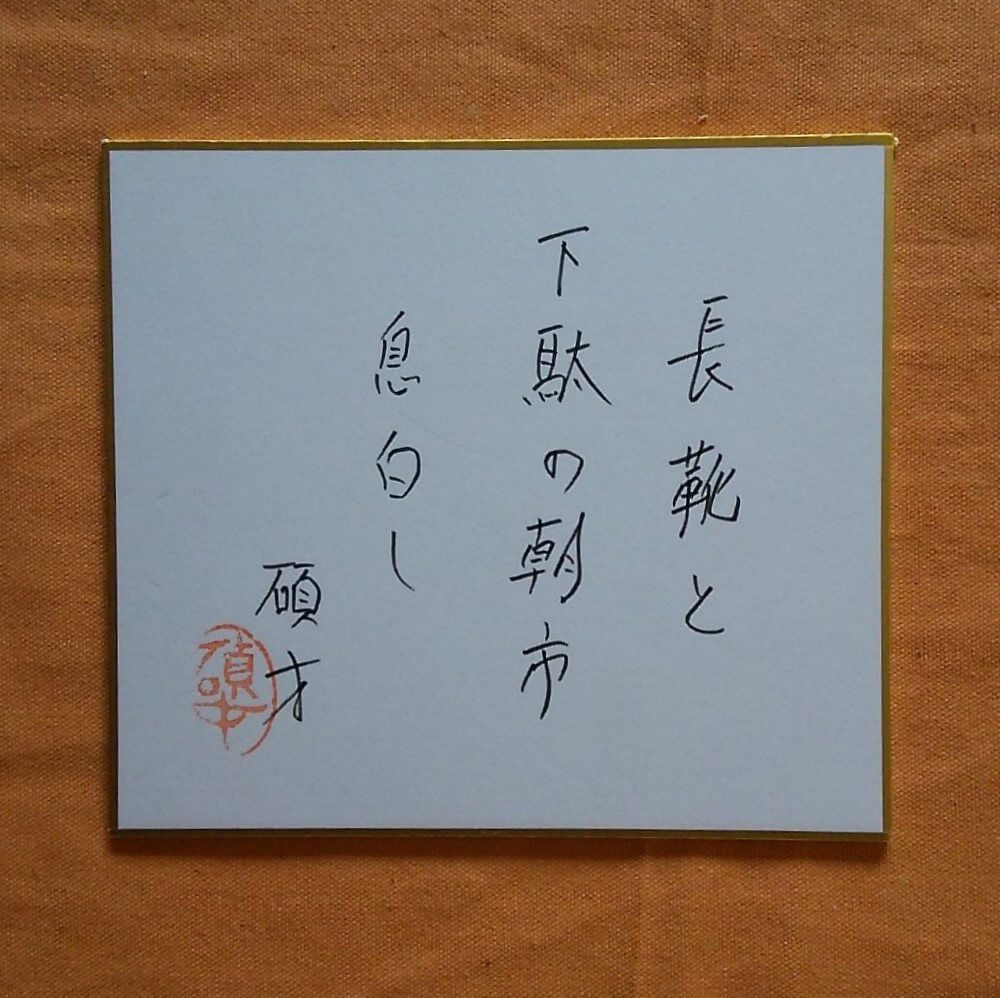 長靴と
下駄の朝市
息白し
碩才
碩才